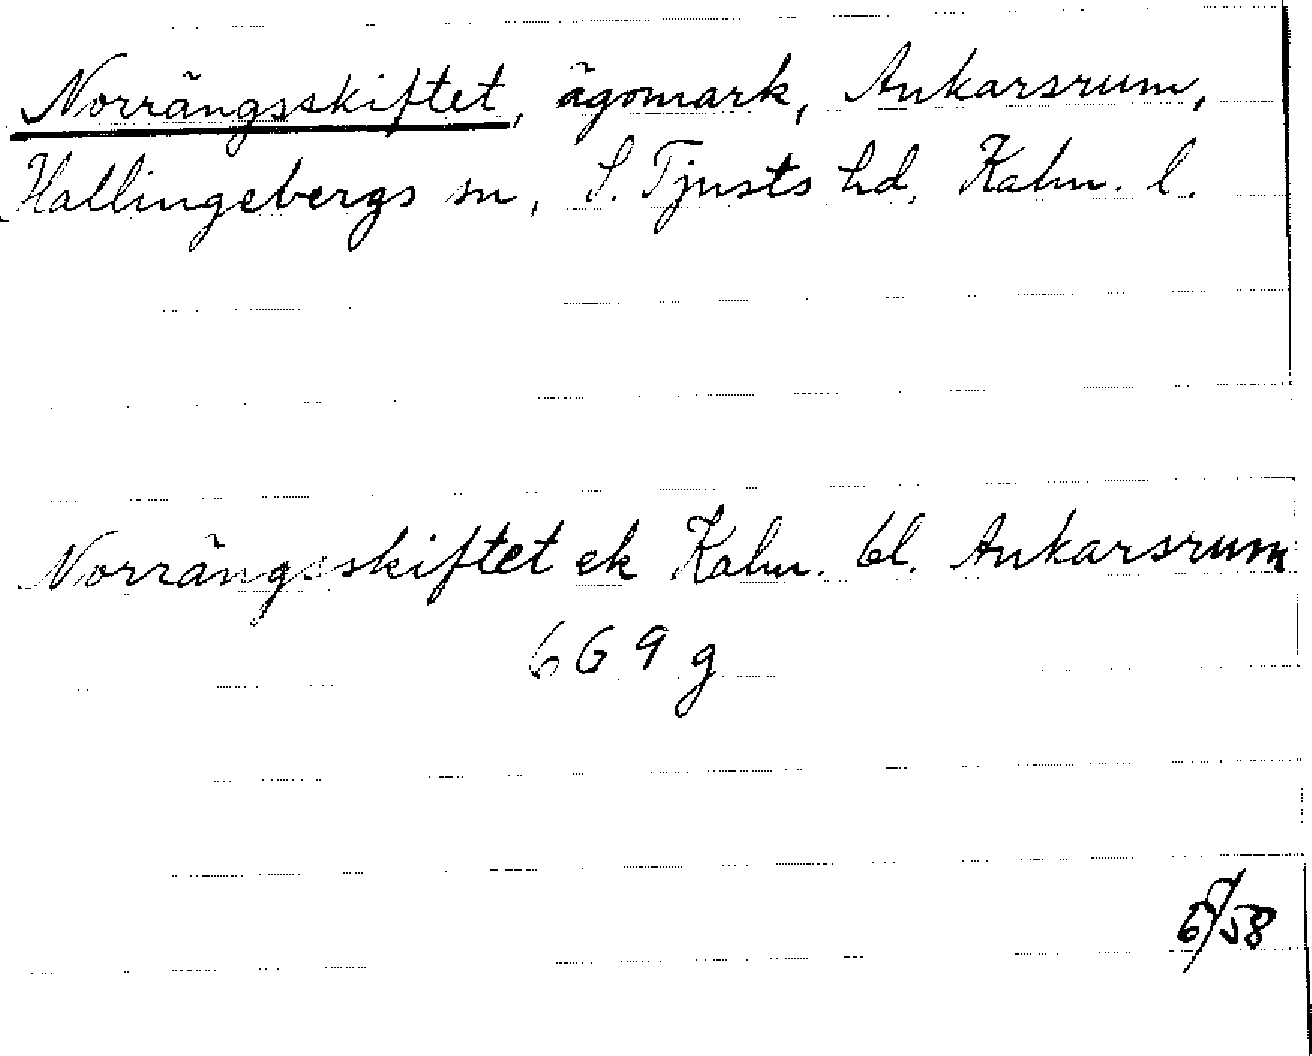 Norrängsskiftet, ägomark, Ankarsrum,
Hallingebergs sn, S. Tjusts hd, Kalm. l.
Norrängsskiftet ek Kalm. bl. Ankarsrum
669 g
/58